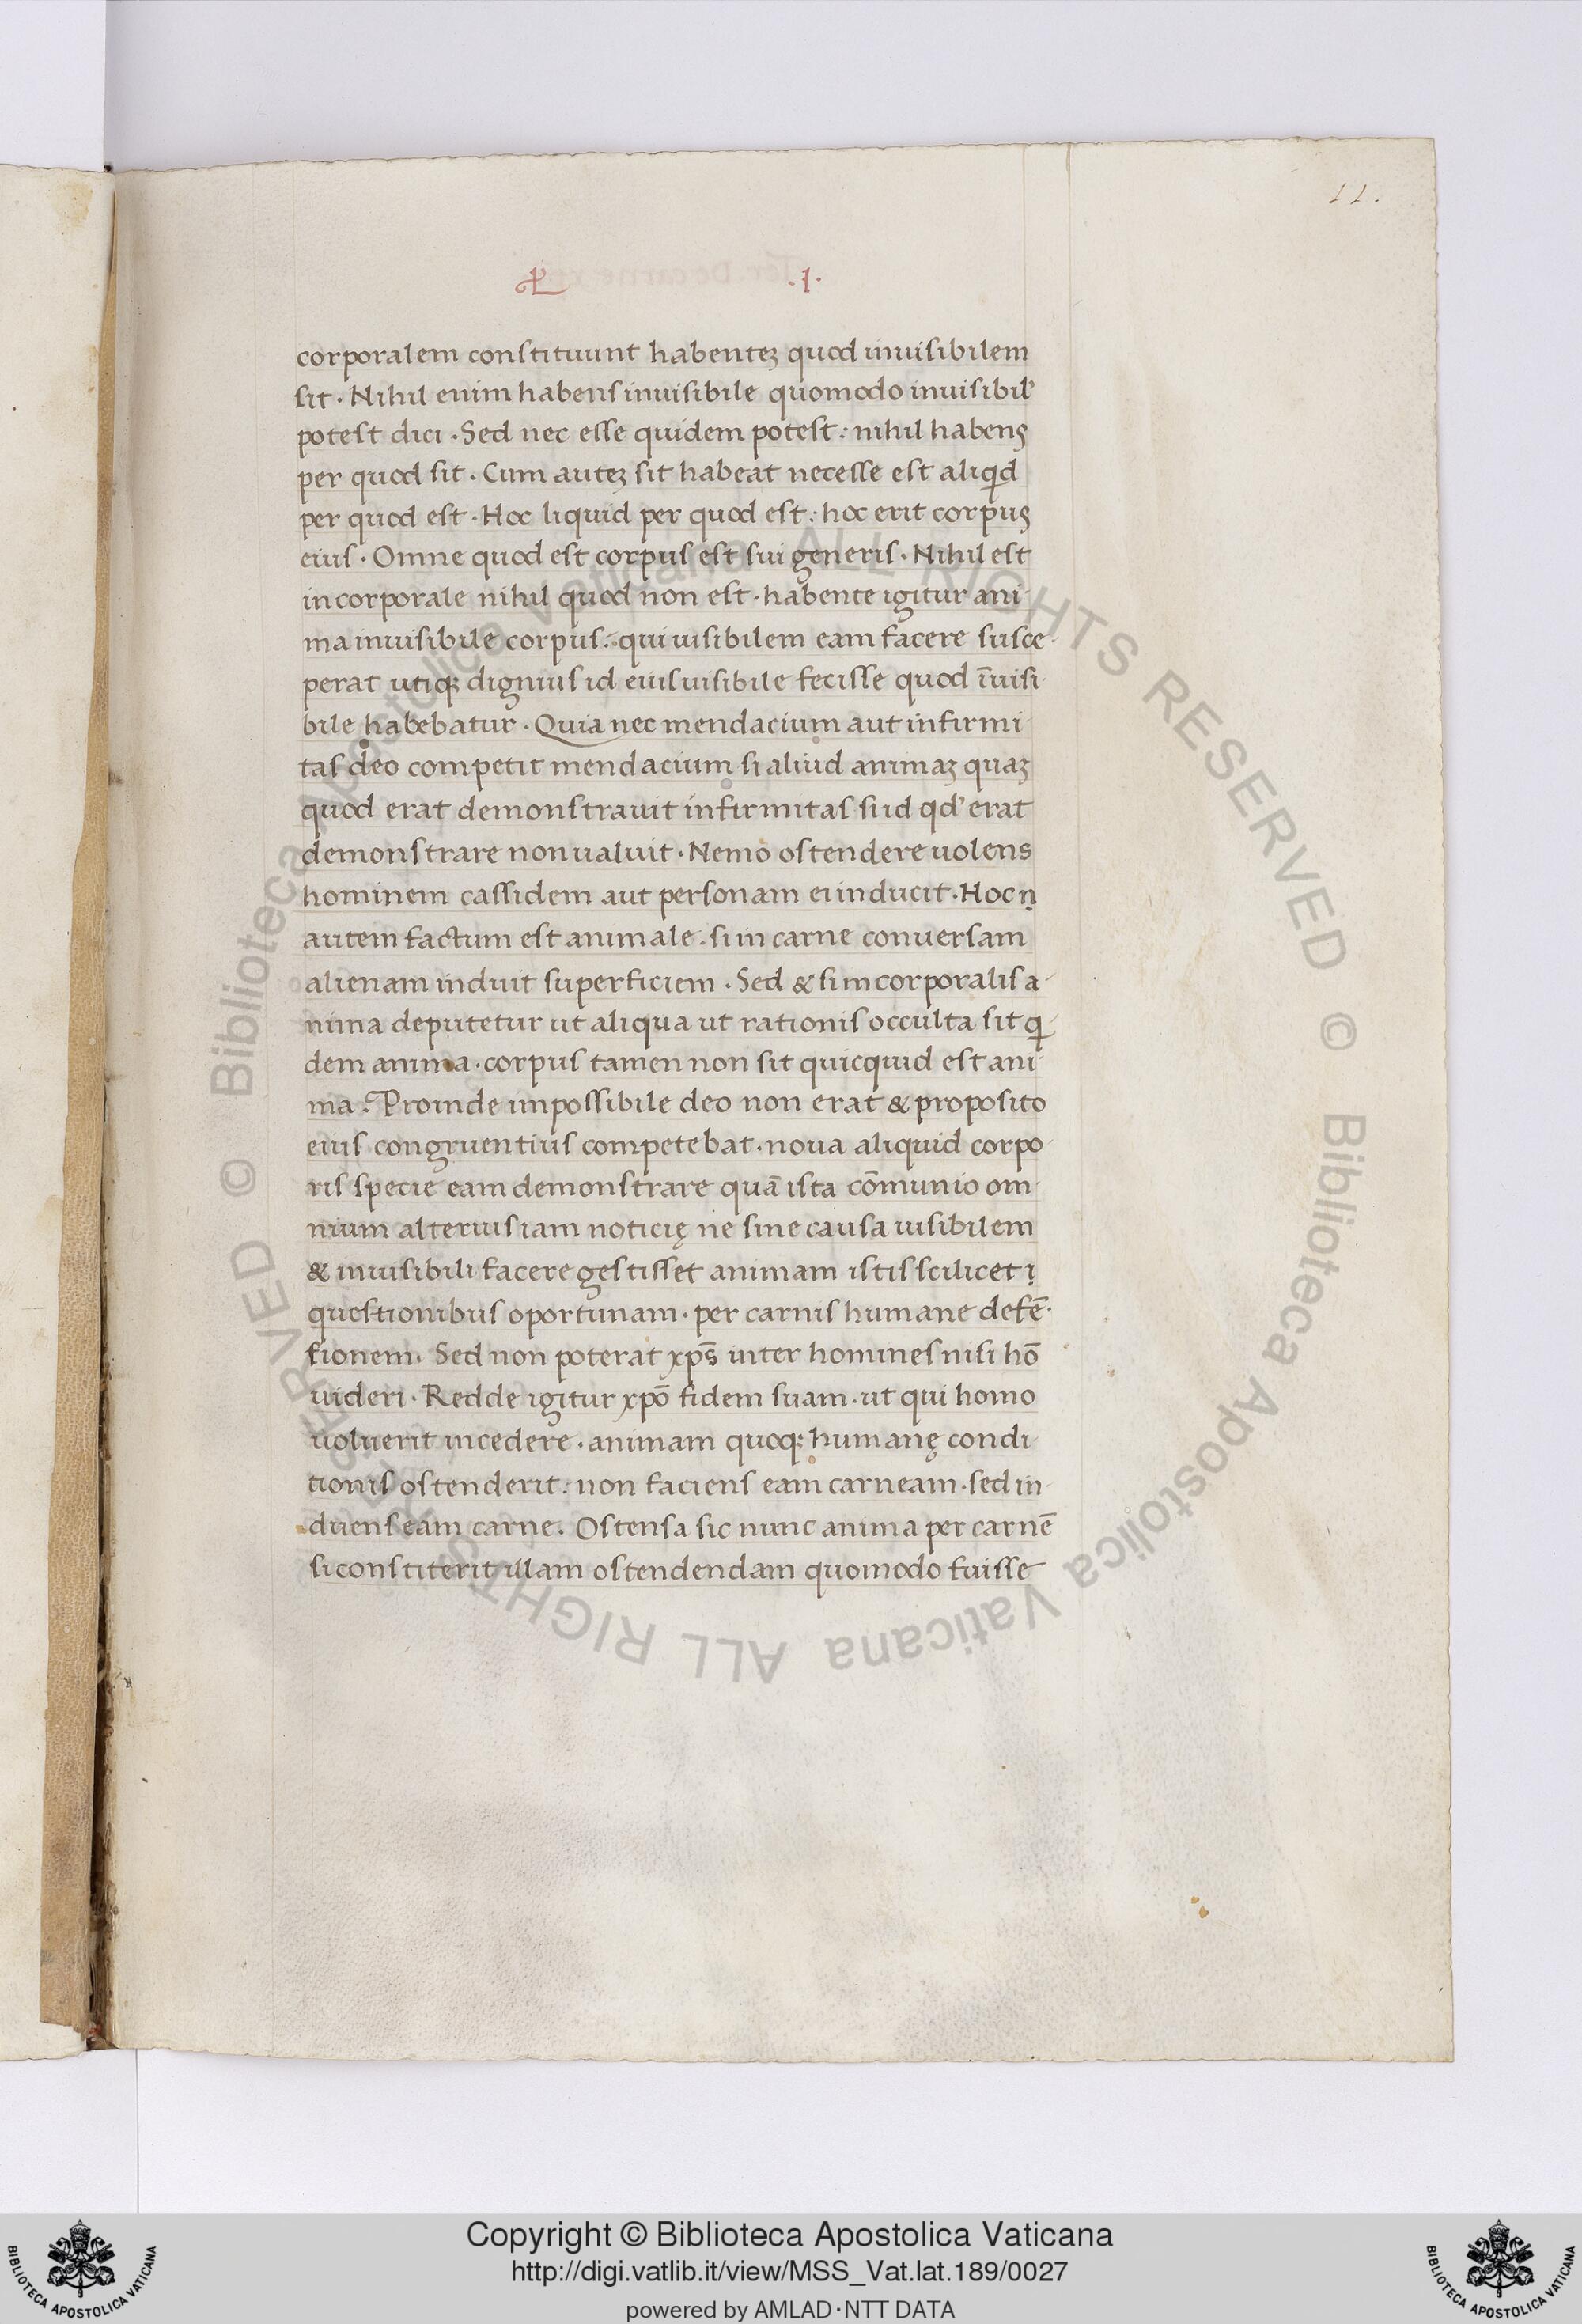 11.
.1.
corporalem constituunt habenteꝫ quod inuisibilem
sit . Nihil enim habens inuisibile quomodo inuisibil'
potest dici . Sed nec esse quidem potest : nihil habens
per quod sit . Cum auteꝫ sit habeat necesse est aliqid
per quod est . Hoc liquid per quod est : hoc erit corpus
eius . Omne quod est corpus est sui generis . Nihil est
incorporale nihil quod non est . habente igitur ani-
ma inuisibile corpus : qui uisibilem eam facere susce-
perat utiqꝫ dignius id eius uisibile fecisse quod īuisi-
bile habebatur . Quia nec mendacium aut infirmi-
tas deo competit mendacium si aliud animaꝫ quaꝫ
quod erat demonstrauit infirmitas si id qd' erat
demonstrare non ualuit . Nemo ostendere uolens
hominem cassidem aut personam ei inducit . Hoc n
autem factum est animale . si in carne conuersam
alienam induit superficiem . Sed & si incorporalis a-
nima deputetur ut aliqua ut rationis occulta sit qi-
dem anima . corpus tamen non sit quicquid est ani-
ma . Proinde impossibile deo non erat & proposito
eius congruentius competebat . noua aliquid corpo-
ris specie eam demonstrare quā ista cōmunio om-
nium alterius iam noticię ne sine causa uisibilem
& inuisibili facere gestisset animam istis scilicet i
questionibus oportunam . per carnis humane defē-
sionem . Sed non poterat xp̄s inter homines nisi hō
uideri . Redde igitur xpō fidem suam . ut qui homo
uoluerit incedere . animam quoqꝫ humanę condi-
tionis ostenderit : non faciens eam carneam . sed in-
duens eam carne . Ostensa sic nunc anima per carnē
si constiterit illam ostendendam quomodo fuisse
© Biblioteca Apostolica Vaticana ALL RIGHTS RESERVED © Biblioteca Apostolica Vaticana ALL RIGHTS RESERVED
Copyright © Biblioteca Apostolica Vaticana
http://digi.vatlib.it/view/MSS_Vat.lat.189/0027
powered by AMLAD·NTT DATA
BIBLIOTECA APOSTOLICA VATICANA
BIBLIOTECA APOSTOLICA VATICANA